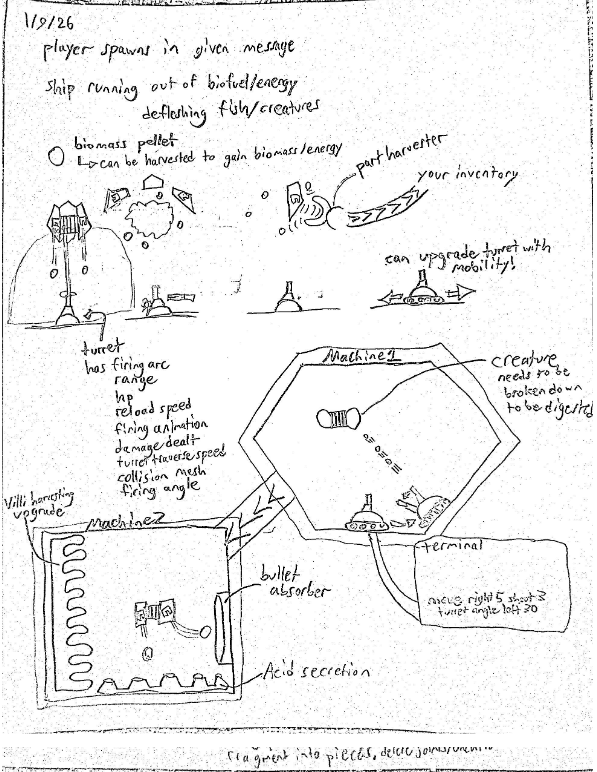 1/9/26
player spawns in given message
ship running out of biofuel/energy
defleshing fish/creatures
biomass pellet
↳ can be harvested to gain biomass/energy
part harvester
your inventory
can upgrade turret with
mobility!
turret
has firing arc
range
hp
reload speed
firing animation
damage dealt
turret traverse speed
collision mesh
firing angle
Machine1
creature
needs to be
broken down
to be digested
Villi harvesting
upgrade
Machine2
bullet
absorber
Acid secretion
terminal
move right 5 shoot 3
turret angle left 30
fragment into pieces, delete joints